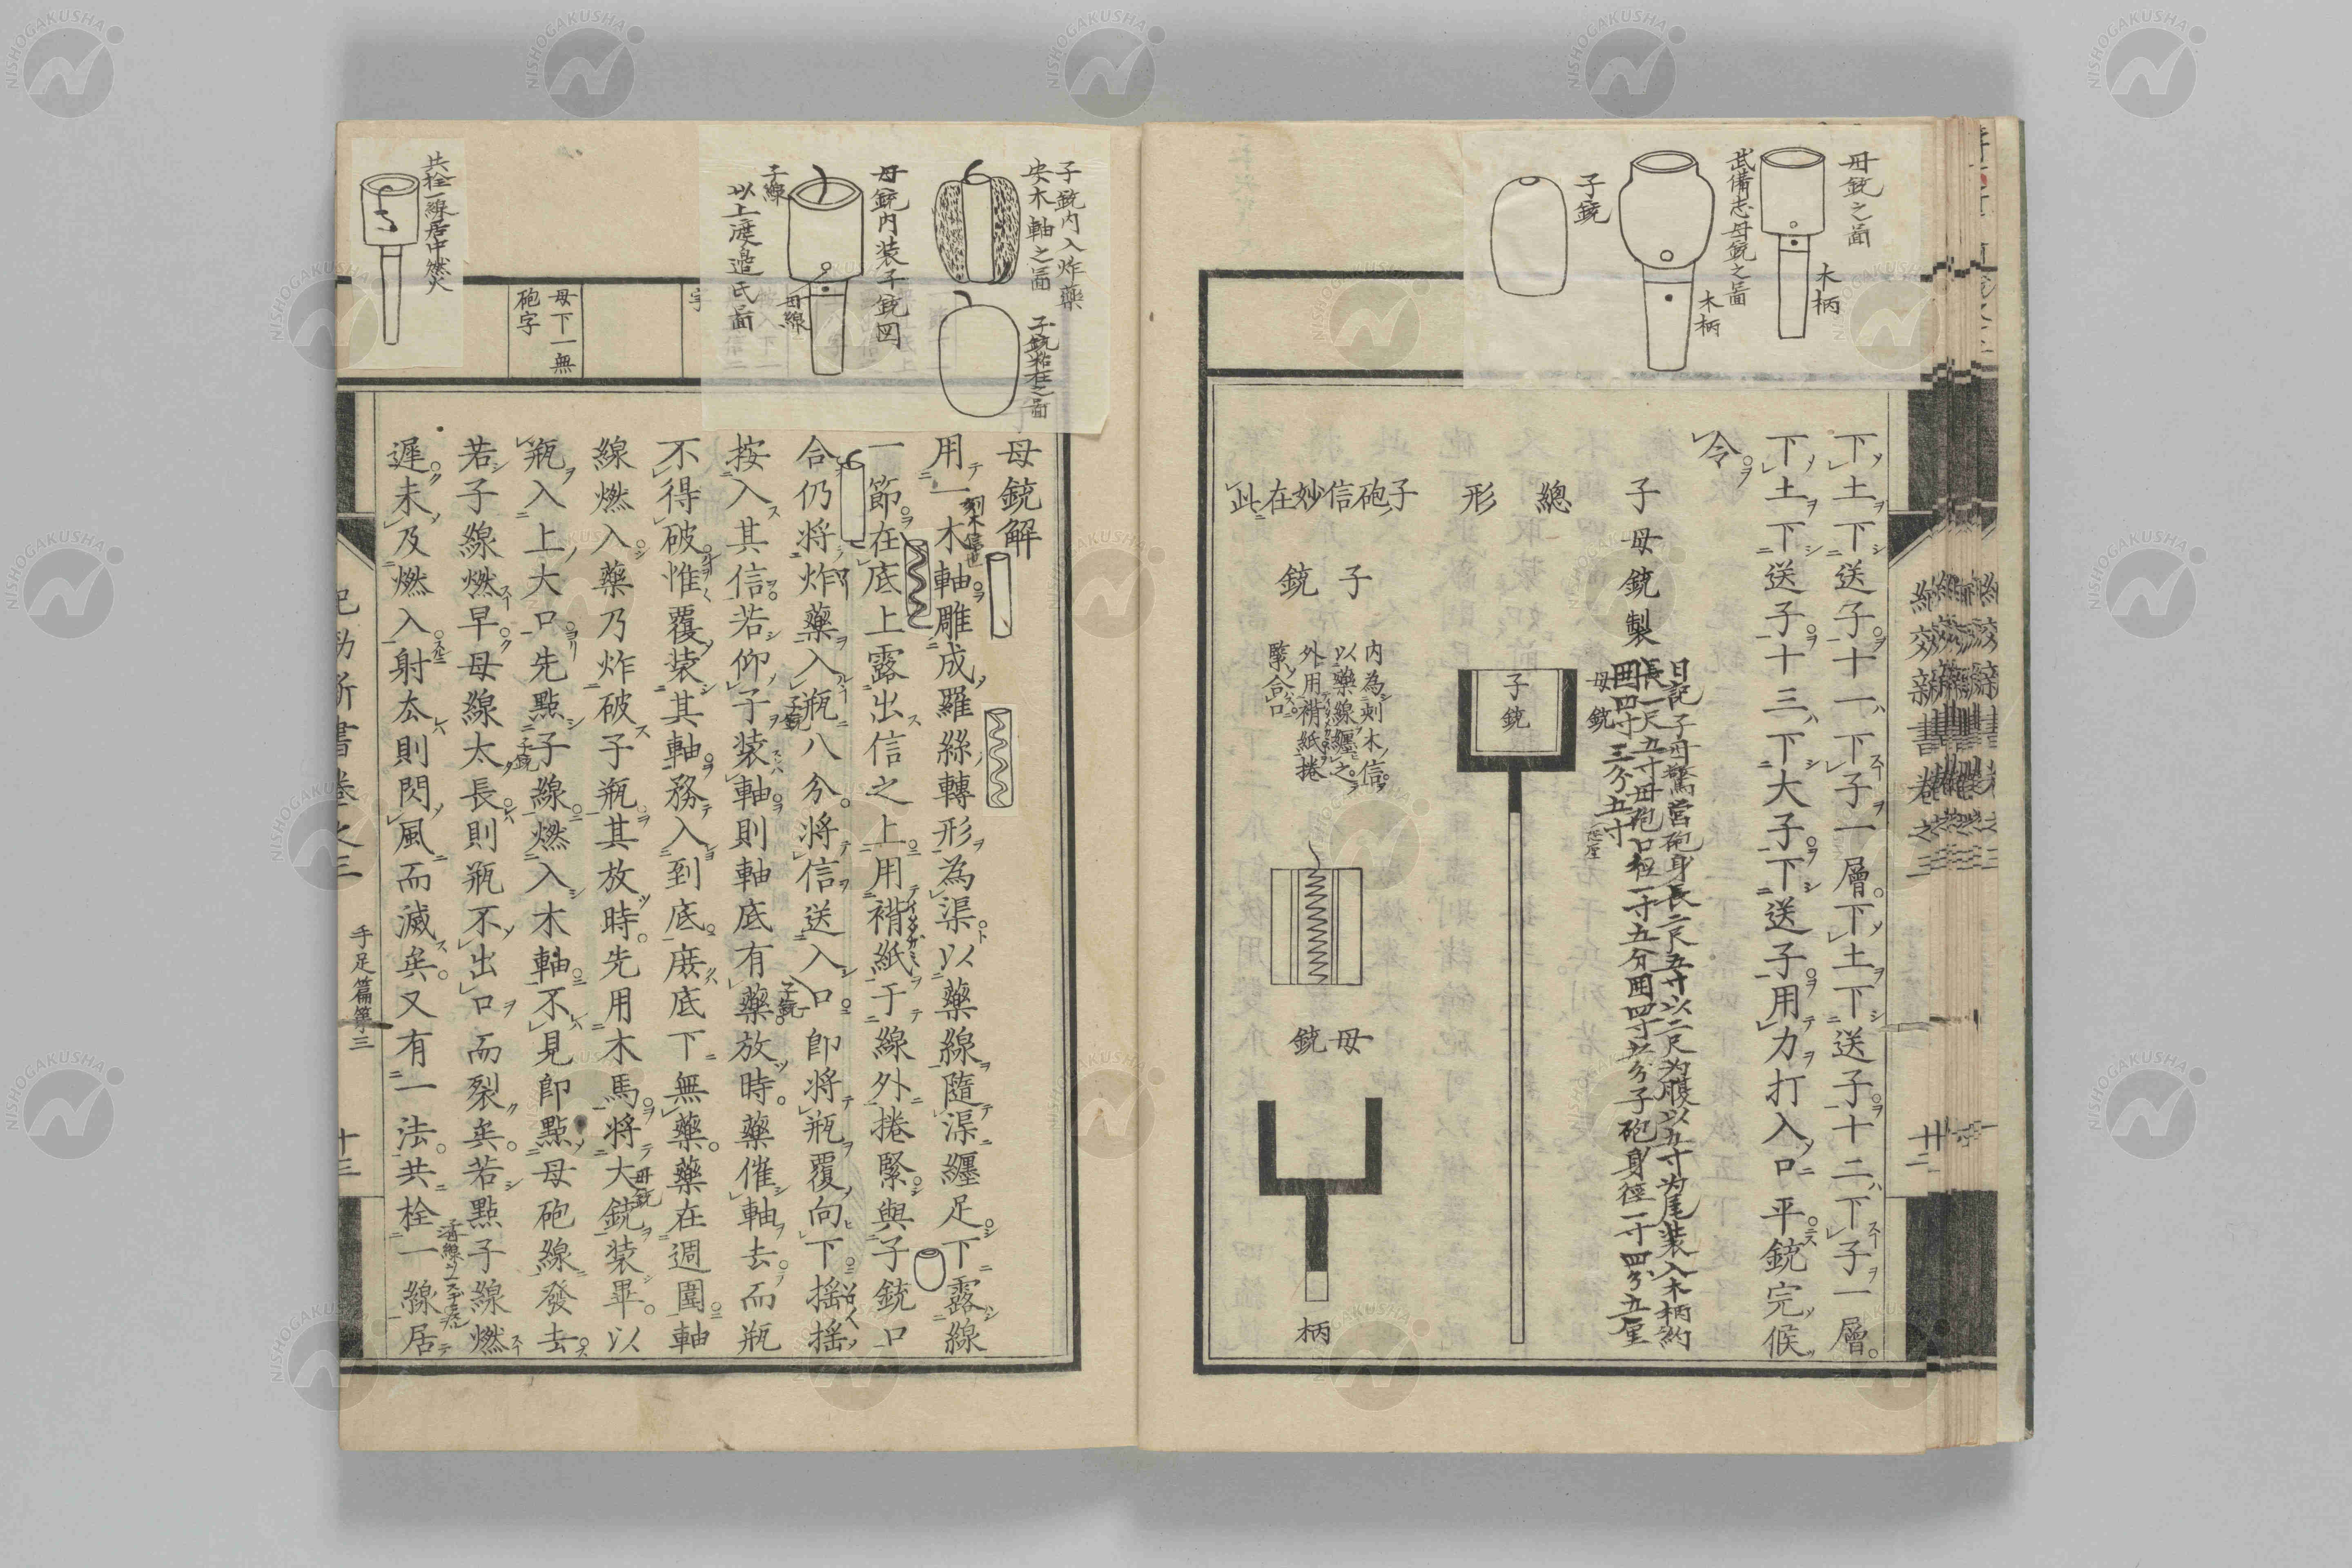 母銃之啚
木柄
武備志母銃之啚
木柄
子銃
下土下送子十一下子一層下土下送子十二下子一層
下土下送子十三下大子下送子用力打入口平銃完候
令
子母銃製
日記子母驚営砲身長二尺五寸以二尺為腹以五寸为尾装入木柄約
長一尺五寸母砲口径一寸五分囲四寸六分子砲身徑一寸四分五厘
囲四寸三分五寸
母銃
子銃
總形
子砲信妙在此
子銃
内為刻木信
以藥線纏之
外用褙紙捲
緊合口
母銃
柄
子銃内入炸藥
央木軸之啚
子銃粘在之啚
母銃内装子銃図
子線
母線
以上渡邉氏啚
共栓一線居中燃火
母下一無
砲字
母銃解
用一木軸雕成羅絲轉形為渠以藥線隨渠纏足下露線
刻木信也
一節在底上露出信之上用褙紙于線外捲緊與子銃口
合仍將炸藥入瓶八分將信送入口即將瓶覆向下搖搖
子銃
按入其信若仰子装軸則軸底有藥放時藥催軸去而瓶
子銃
不得破惟覆装其軸務入到底庶底下無藥藥在週圍軸
線燃入藥乃炸破子瓶其放時先用木馬將大銃装畢以
母銃
瓶入上大口先點子線燃入木軸不見即點母砲線發去
子銃
若子線燃早母線太長則瓶不出口而裂矣若點子線燃
遲未及燃入射去則閃風而滅矣又有一法共栓一線居
紀効新書巻之三
手足篇第三
十三
NISHOGAKUSHA